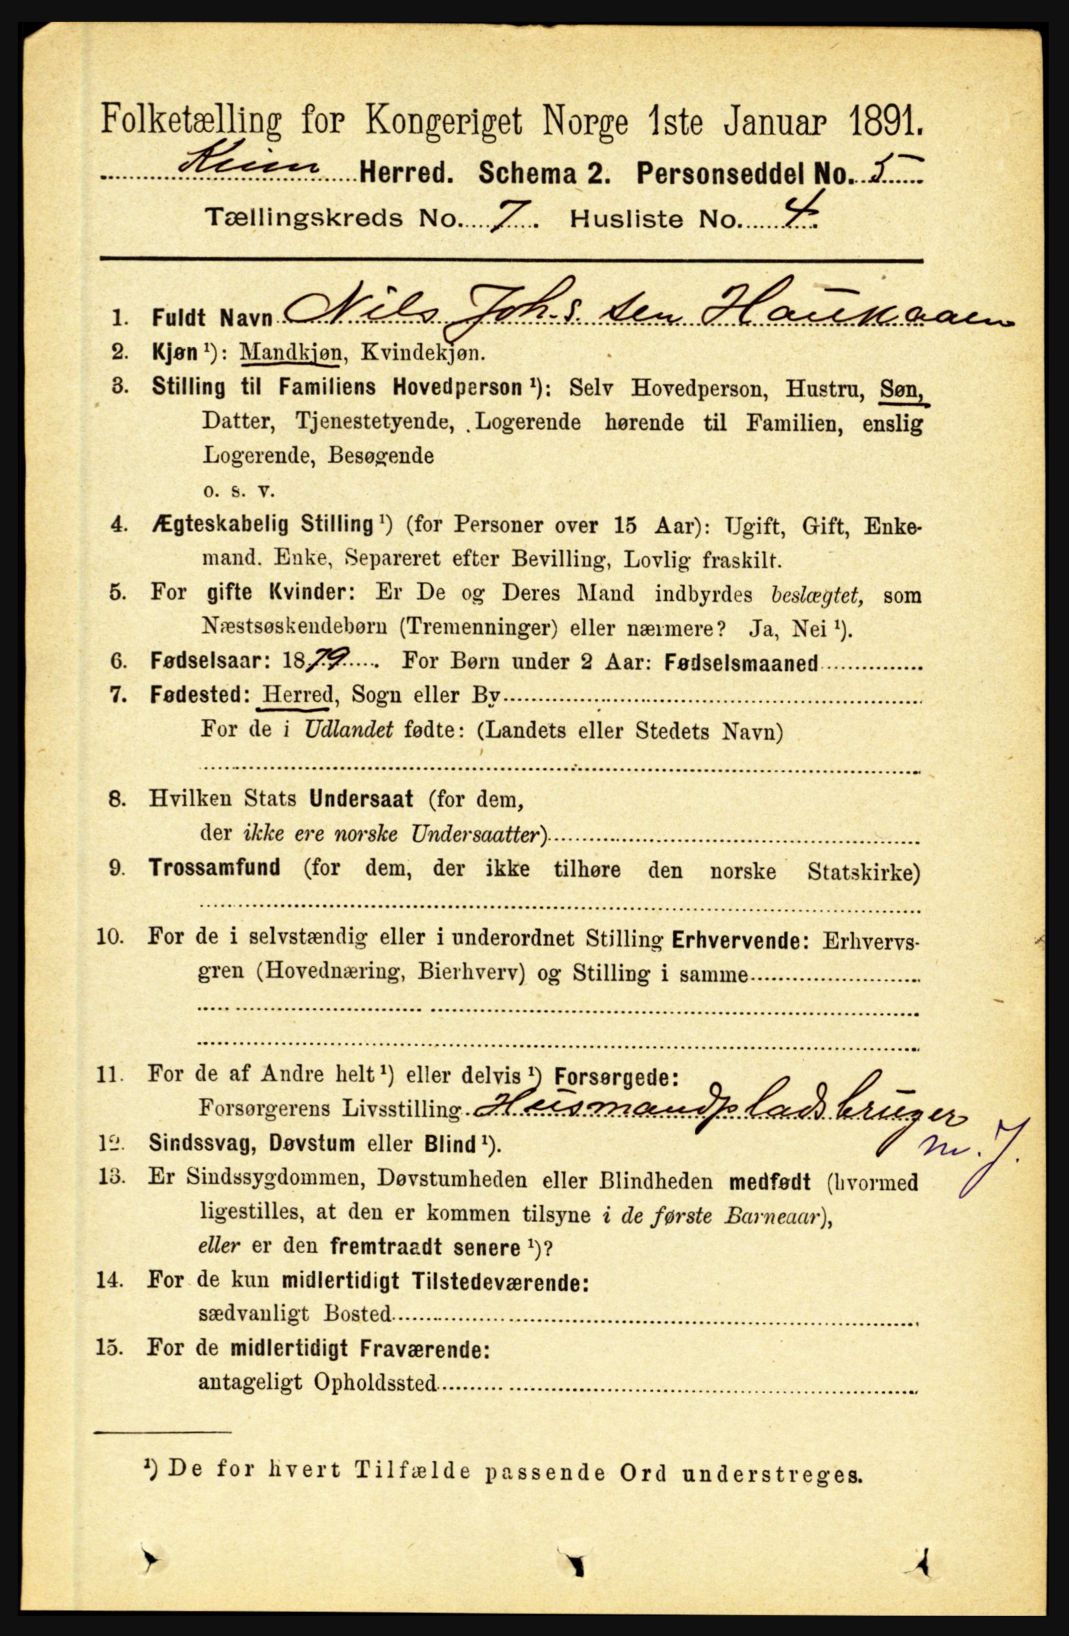 Folketælling for Kongeriget Norge 1ste Januar 1891.
Kinn Herred. Schema 2. Personseddel No. 5
Tællingskreds No. 7. Husliste No. 4.
1. Fuldt Navn Nils Joh.s.sen Haukaaen
2. Kjøn ¹): Mandkjøn, Kvindekjøn.
3. Stilling til Familiens Hovedperson ¹): Selv Hovedperson, Hustru, Søn,
Datter, Tjenestetyende, Logerende hørende til Familien, enslig
Logerende, Besøgende
o. s. v.
4. Ægteskabelig Stilling ¹) (for Personer over 15 Aar): Ugift, Gift, Enke-
mand. Enke, Separeret efter Bevilling, Lovlig fraskilt.
5. For gifte Kvinder: Er De og Deres Mand indbyrdes beslægtet, som
Næstsøskendebørn (Tremenninger) eller nærmere? Ja, Nei ¹).
6. Fødselsaar: 1879. For Børn under 2 Aar: Fødselsmaaned
7. Fødested: Herred, Sogn eller By
For de i Udlandet fødte: (Landets eller Stedets Navn)
8. Hvilken Stats Undersaat (for dem,
der ikke ere norske Undersaatter)
9. Trossamfund (for dem, der ikke tilhøre den norske Statskirke)
10. For de i selvstændig eller i underordnet Stilling Erhvervende: Erhvervs-
gren (Hovednæring, Bierhverv) og Stilling i samme
11. For de af Andre helt ¹) eller delvis ¹) Forsørgede:
Forsørgerens Livsstilling Husmandpladsbruger
m. J.
12. Sindssvag, Døvstum eller Blind ¹).
13. Er Sindssygdommen, Døvstumheden eller Blindheden medfødt (hvormed
ligestilles, at den er kommen tilsyne i de første Barneaar),
eller er den fremtraadt senere ¹)?
14. For de kun midlertidigt Tilstedeværende:
sædvanligt Bosted
15. For de midlertidigt Fraværende:
antageligt Opholdssted
¹) De for hvert Tilfælde passende Ord understreges.